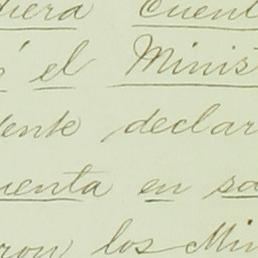 diera cuent
el Minist
dente declar
uenta en sa
ron los Min